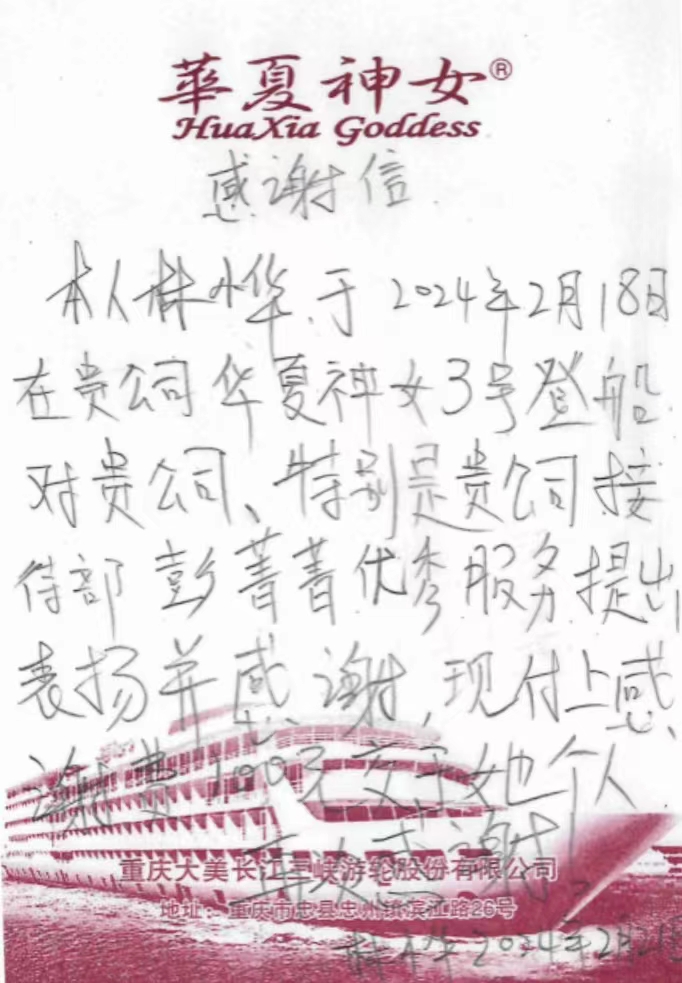 華夏神女®
HuaXia Goddess
感谢信
本人林小华,于2024年2月18日
在贵公司华夏神女3号登船
对贵公司、特别是贵公司接
待部彭菁菁优秀服务提出
表扬并感谢,现付上感
谢费100元交于她个人
再次感谢!
重庆大美长江三峡游轮股份有限公司
地址:重庆市忠县忠州镇滨江路26号
林小华2024年2月21